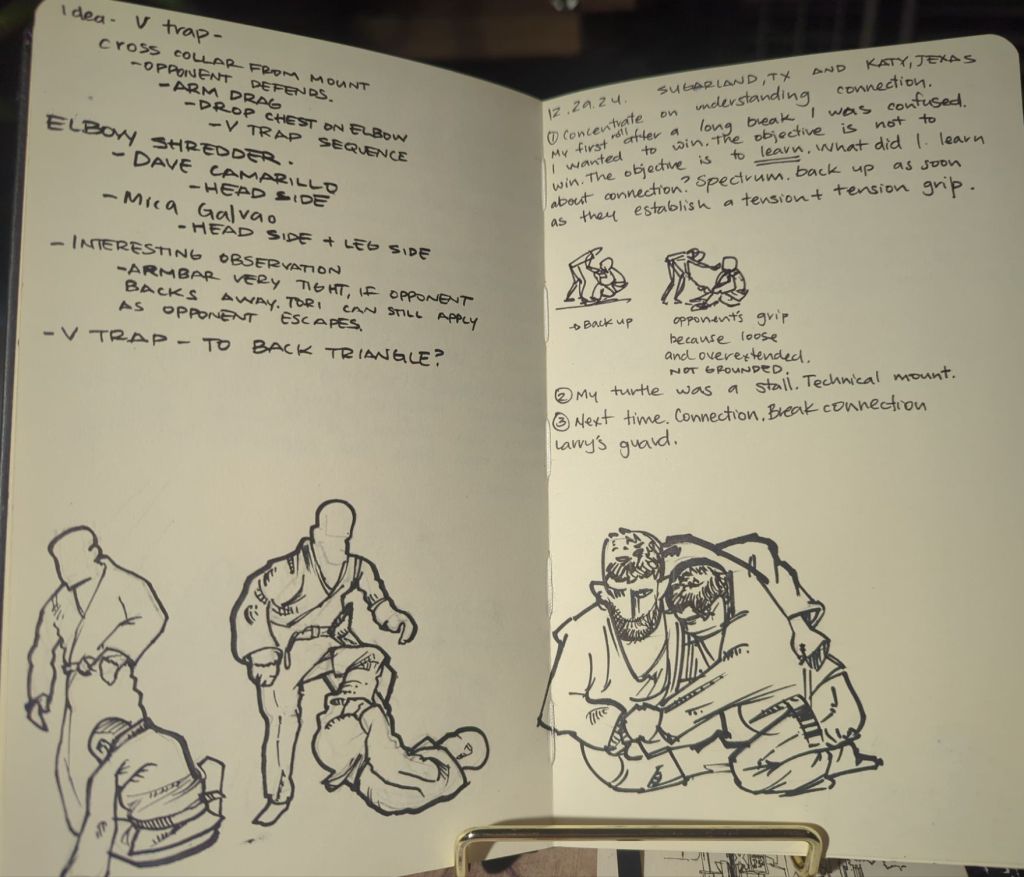 Idea- V trap-
CROSS COLLAR FROM MOUNT
-OPPONENT DEFENDS.
-ARM DRAG
-DROP CHEST ON ELBOW
-V TRAP SEQUENCE
ELBOW SHREDDER.
- DAVE CAMARILLO
-HEAD SIDE
- Mica Galvao
-HEAD SIDE + LEG SIDE
- INTERESTING OBSERVATION
-ARMBAR VERY TIGHT, IF OPPONENT
BACKS AWAY. TORI CAN STILL APPLY
AS OPPONENT ESCAPES.
- V TRAP - TO BACK TRIANGLE?
12.29.24. SUGARLAND, TX AND KATY, TEXAS
① Concentrate on understanding connection.
My first roll after a long break I was confused.
I wanted to win. The objective is not to
win. The objective is to learn. What did I learn
about connection? Spectrum. back up as soon
as they establish a tension + tension grip.
→ Back up
opponent's grip
because loose
and overextended.
NOT GROUNDED.
② My turtle was a stall. Technical mount.
③ Next time. Connection. Break connection
Larry's guard.